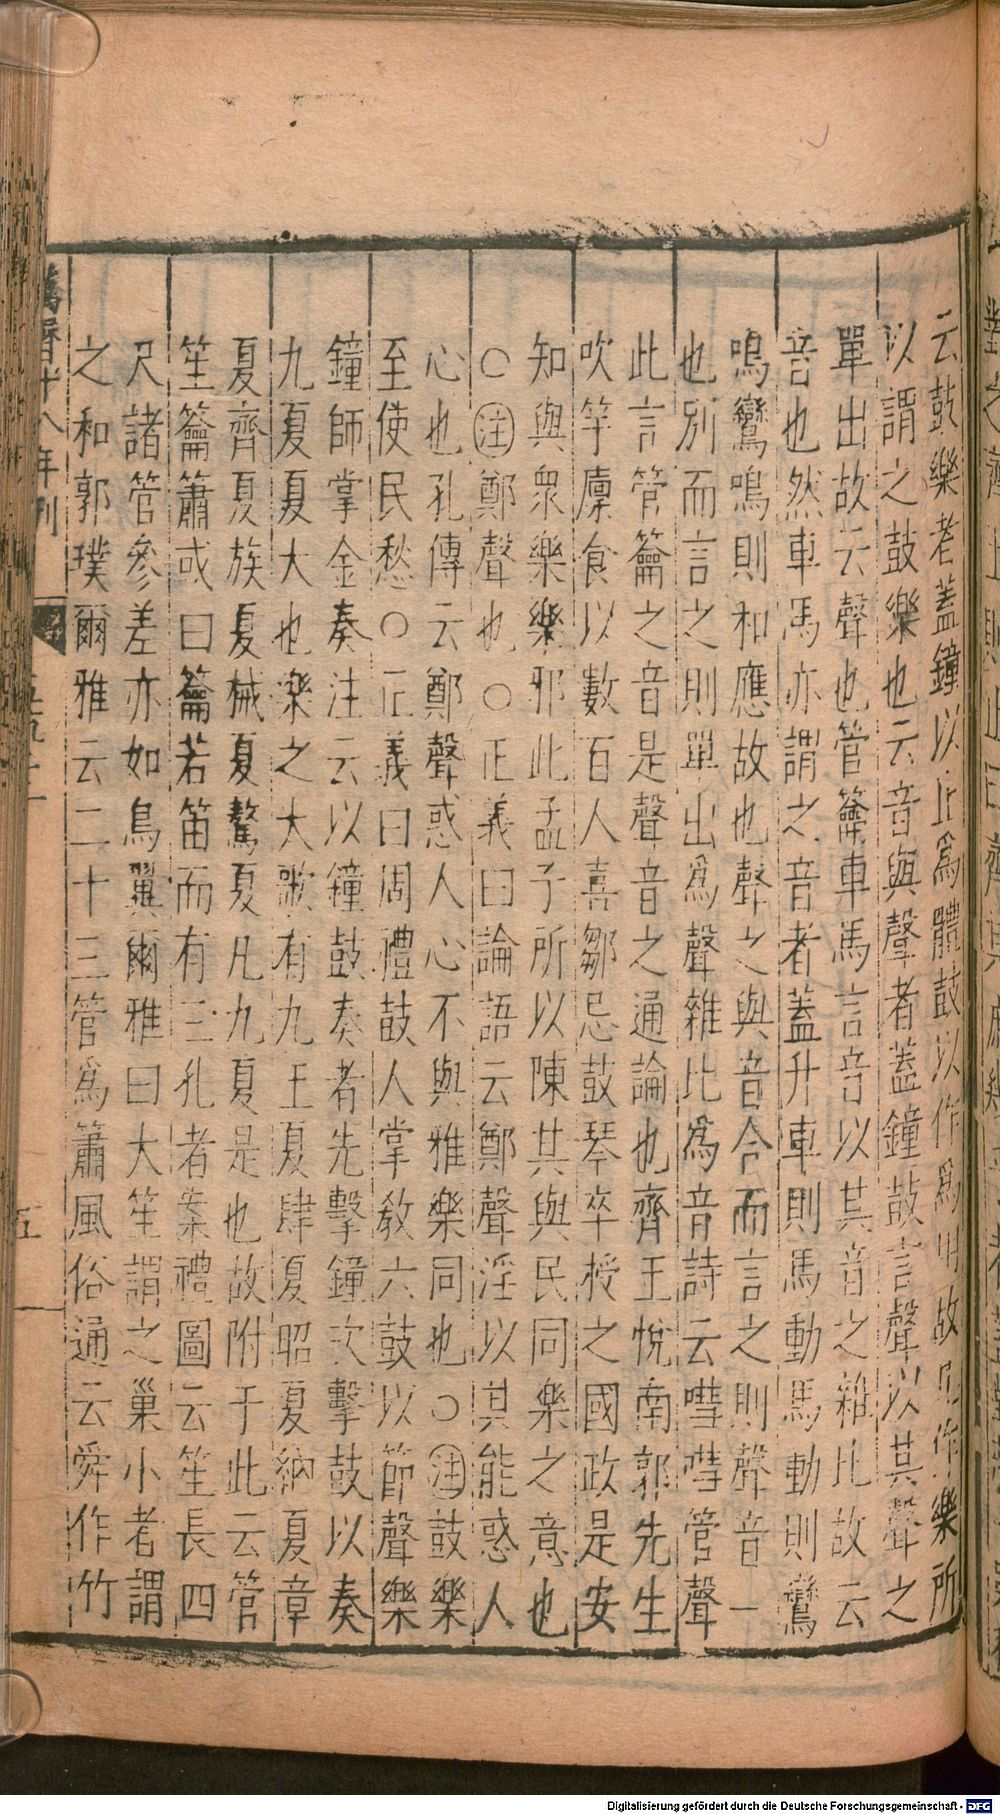 云鼓樂者蓋鐘以止爲體鼓以作爲用故凡作樂所
以謂之鼓樂也云音與聲者蓋鐘鼓言聲以其聲之
單出故云聲也管籥車馬言音以其音之雜比故云
音也然車馬亦謂之音者蓋升車則馬動馬動則鸞
鳴鸞鳴則和應故也聲之與音合而言之則聲音一
也別而言之則單出爲聲雜比爲音詩云嘒嘒管聲
此言管籥之音是聲音之通論也齊王悅南郭先生
吹竽廩食以數百人喜鄒忌鼓琴卒授之國政是安
知與衆樂樂邪此孟子所以陳其與民同樂之意也
○注鄭聲也○正義曰論語云鄭聲淫以其能惑人
心也孔傳云鄭聲惑人心不與雅樂同也○注鼓樂
至使民愁○正義曰周禮鼓人掌敎六鼓以節聲樂
鐘師掌金奏注云以鐘鼓奏者先擊鐘次擊鼓以奏
九夏夏大也樂之大歌有九王夏肆夏昭夏納夏章
夏齊夏族夏械夏驁夏凡九夏是也故附于此云管
笙籥簫或曰籥若笛而有三孔者案禮圖云笙長四
尺諸管參差亦如鳥翼爾雅曰大笙謂之巢小者謂
之和郭璞爾雅云二十三管爲簫風俗通云舜作竹
萬曆十八年刊
五
Digitalisierung gefördert durch die Deutsche Forschungsgemeinschaft - DFG